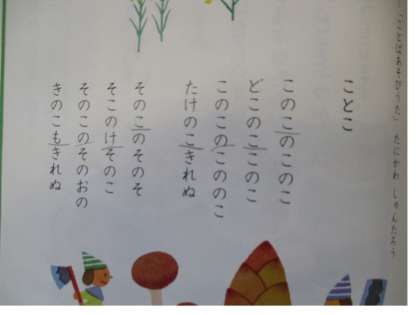 「ことばあそびうた」 たにかわ しゅんたろう
ことこ
このこのこのこ
どこのここのこ
このこのこののこ
たけのこきれぬ
そのこのそのそ
そこのけそのこ
そのこのそのおの
きのこもきれぬ